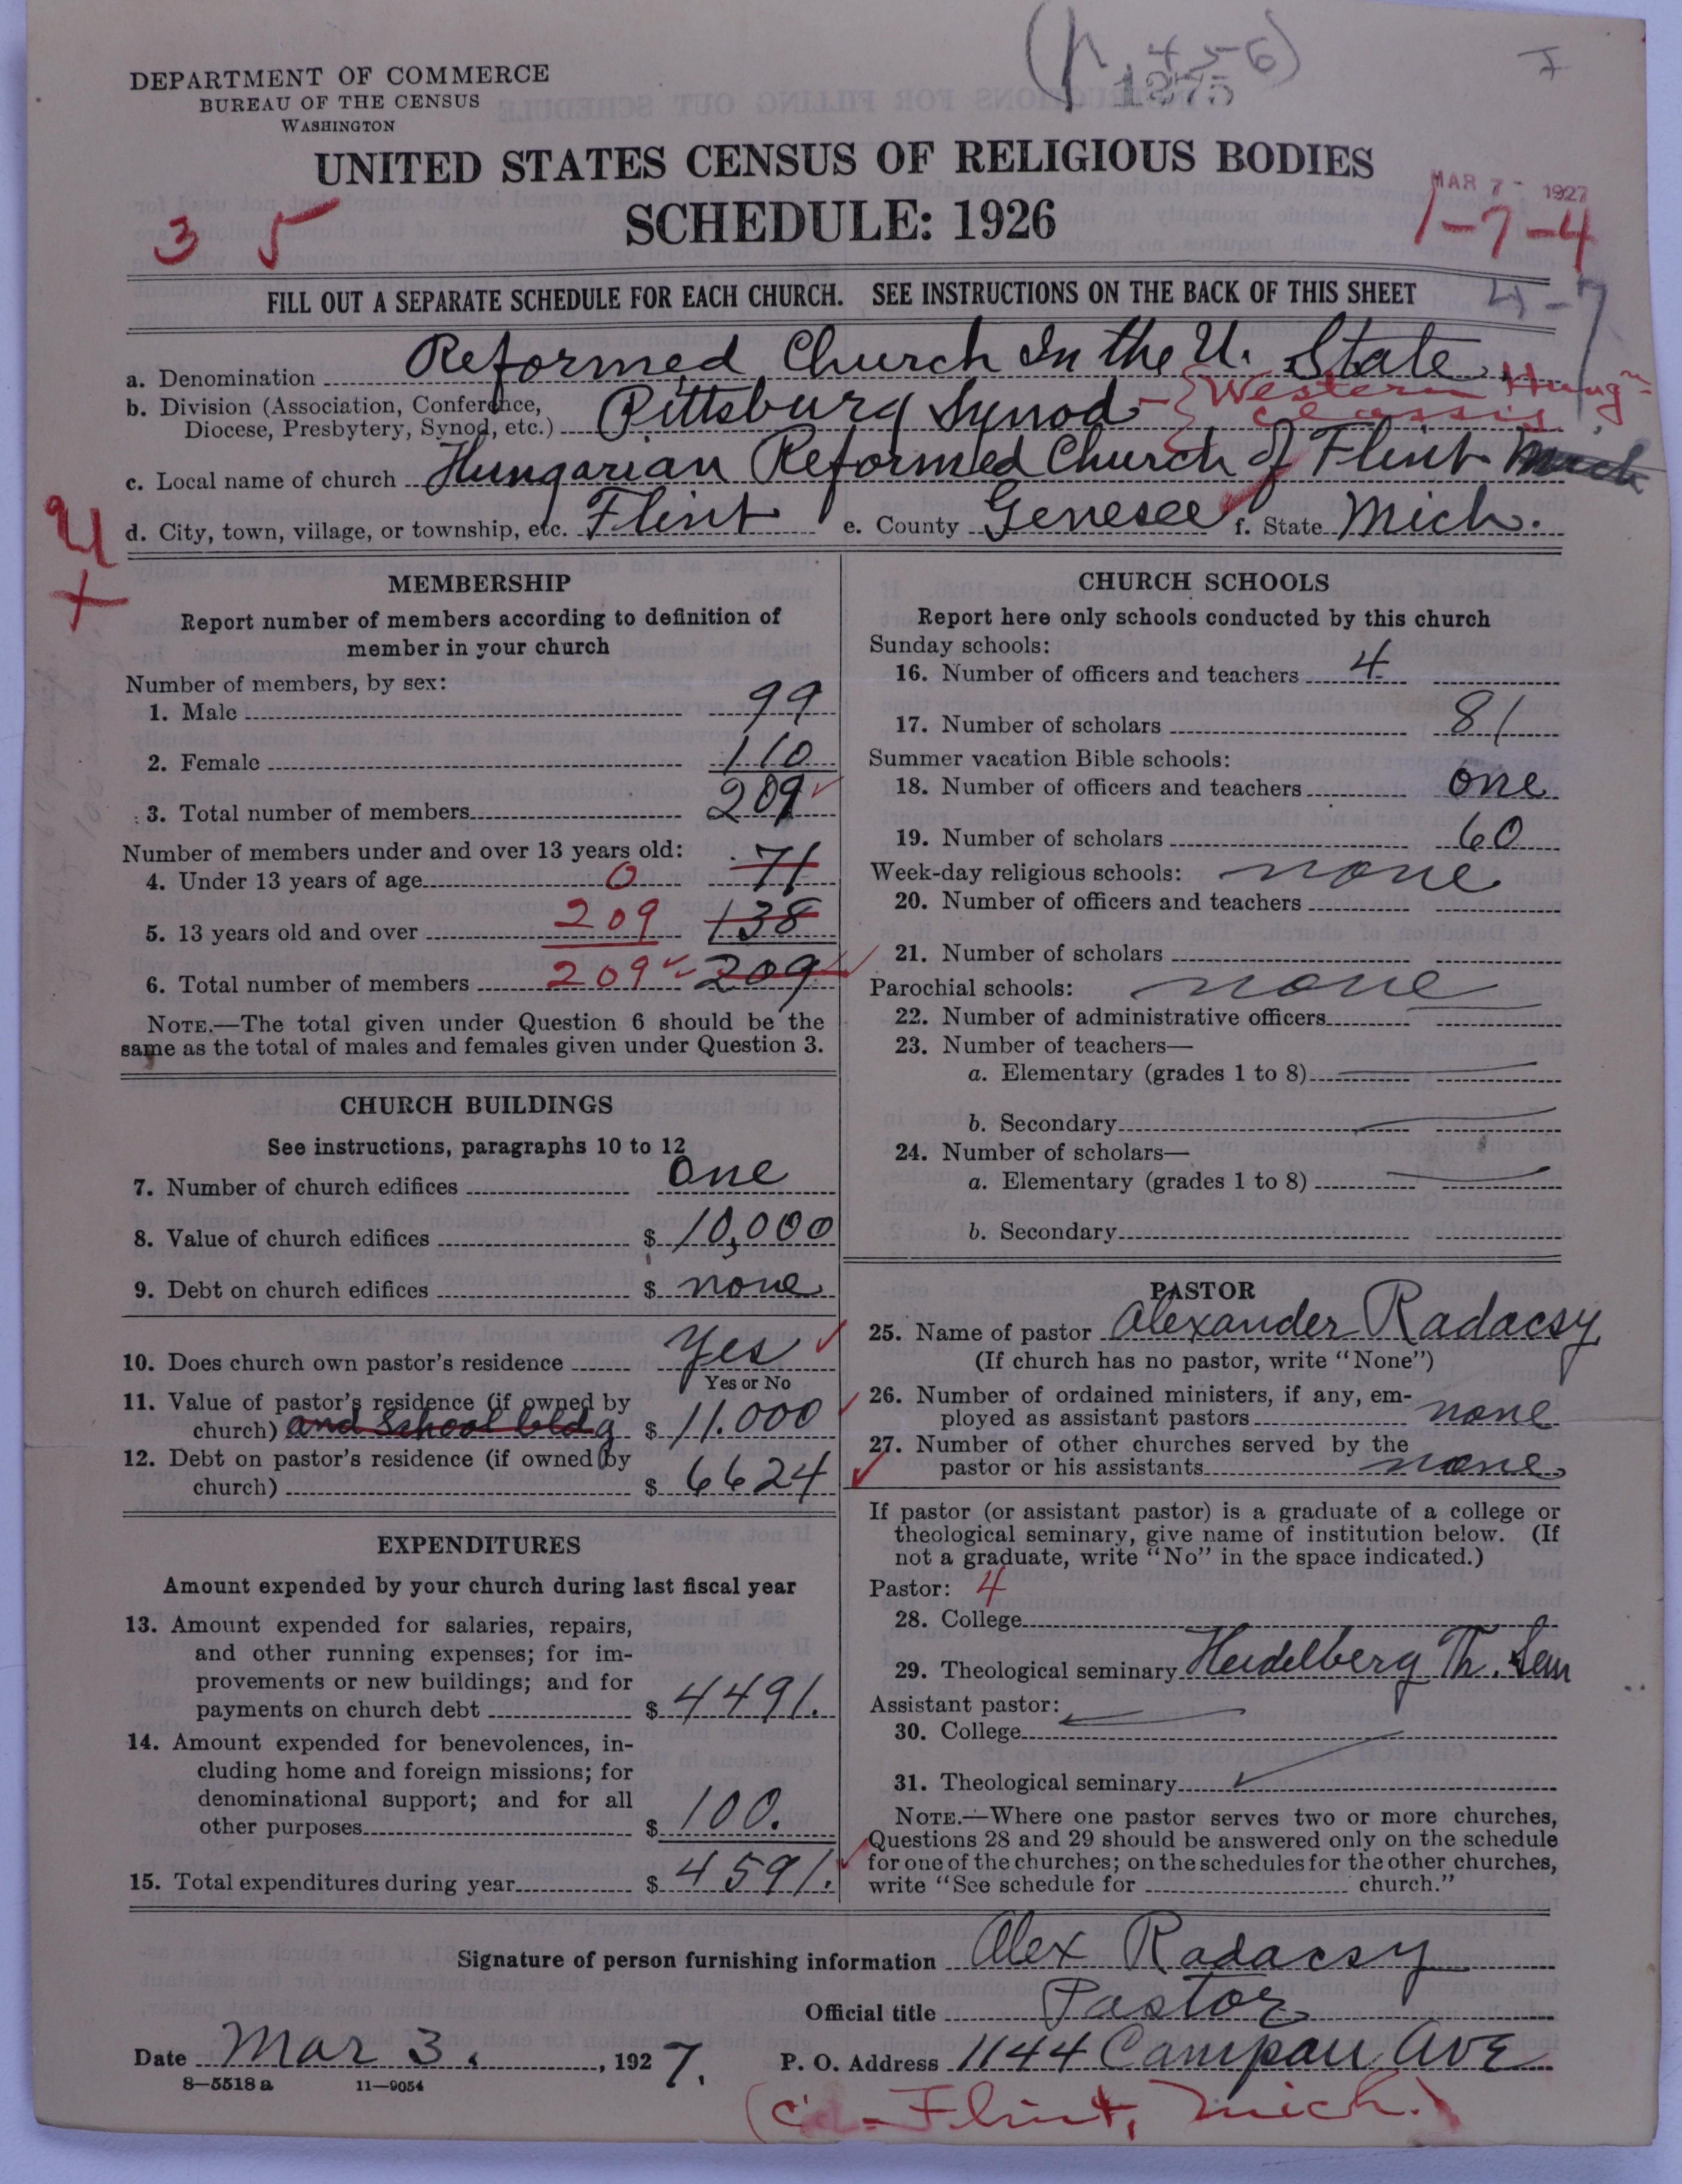 (h. 456)
1375
7
DEPARTMENT OF COMMERCE
BUREAU OF THE CENSUS
WASHINGTON
UNITED STATES CENSUS OF RELIGIOUS BODIES
MAR 7 - 1927
SCHEDULE: 1926
3 5
1-7-4
FILL OUT A SEPARATE SCHEDULE FOR EACH CHURCH. SEE INSTRUCTIONS ON THE BACK OF THIS SHEET
4-7
a. Denomination Reformed Church In the U. State
b. Division (Association, Conference, Diocese, Presbytery, Synod, etc.) Pittsburg Synod - Western Hung'n Classis
c. Local name of church Hungarian Reformed Church of Flint Mich
d. City, town, village, or township, etc. Flint e. County Genesee f. State Mich.
4
+
MEMBERSHIP
Report number of members according to definition of
member in your church
Number of members, by sex:
1. Male 99
2. Female 110
3. Total number of members 209
Number of members under and over 13 years old:
4. Under 13 years of age 0 71
5. 13 years old and over 209 138
6. Total number of members 209 209
NOTE.—The total given under Question 6 should be the
same as the total of males and females given under Question 3.
CHURCH BUILDINGS
See instructions, paragraphs 10 to 12
7. Number of church edifices one
8. Value of church edifices $ 10,000
9. Debt on church edifices $ none
10. Does church own pastor's residence Yes
Yes or No
11. Value of pastor's residence (if owned by
church) and School bldg $ 11.000
12. Debt on pastor's residence (if owned by
church) $ 6624
EXPENDITURES
Amount expended by your church during last fiscal year
13. Amount expended for salaries, repairs,
and other running expenses; for im-
provements or new buildings; and for
payments on church debt $ 4491.
14. Amount expended for benevolences, in-
cluding home and foreign missions; for
denominational support; and for all
other purposes $ 100.
15. Total expenditures during year $ 4591.
CHURCH SCHOOLS
Report here only schools conducted by this church
Sunday schools:
16. Number of officers and teachers 4
17. Number of scholars 81
Summer vacation Bible schools:
18. Number of officers and teachers one
19. Number of scholars 60
Week-day religious schools: none
20. Number of officers and teachers
21. Number of scholars
Parochial schools: none
22. Number of administrative officers
23. Number of teachers—
a. Elementary (grades 1 to 8)
b. Secondary
24. Number of scholars—
a. Elementary (grades 1 to 8)
b. Secondary
PASTOR
25. Name of pastor Alexander Radacsy
(If church has no pastor, write "None")
26. Number of ordained ministers, if any, em-
ployed as assistant pastors none
27. Number of other churches served by the
pastor or his assistants none
If pastor (or assistant pastor) is a graduate of a college or
theological seminary, give name of institution below. (If
not a graduate, write "No" in the space indicated.)
Pastor: 4
28. College
29. Theological seminary Heidelberg Th. Sem
Assistant pastor:
30. College
31. Theological seminary
NOTE.—Where one pastor serves two or more churches,
Questions 28 and 29 should be answered only on the schedule
for one of the churches; on the schedules for the other churches,
write "See schedule for church."
Signature of person furnishing information Alex Radacsy
Official title Pastor
Date Mar 3. , 1927. P. O. Address 1144 Campau Ave
8—5518 a 11—9054
Flint, Mich.)